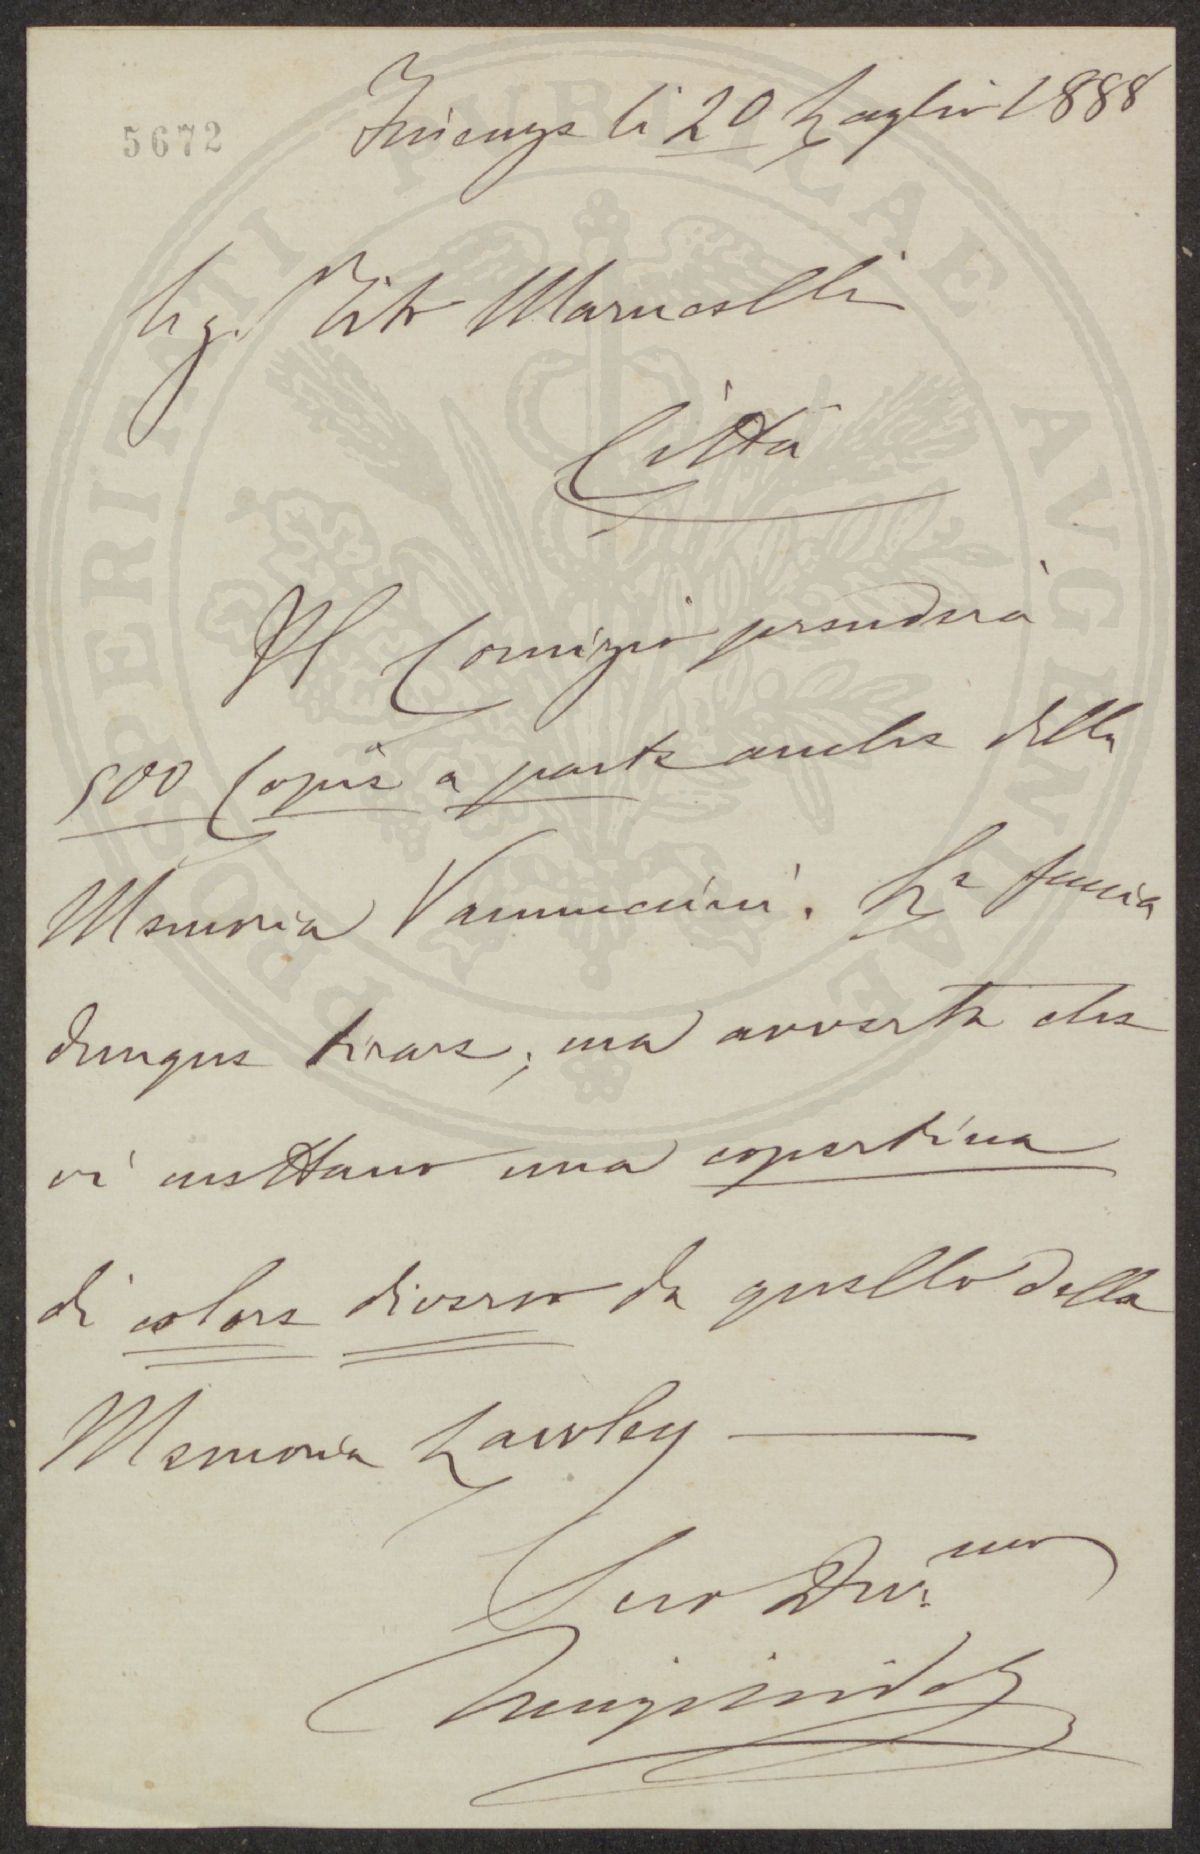 5672
Firenze li 20 Luglio 1888
Sig. Vito Marucelli
Città
Il Comizio prenderà
500 Copie a parte anche della
Memoria Vannuccini. La faccia
dunque tirare; ma avverta che
vi mettano una copertina
di colore diverso da quello della
Memoria Lawley
Suo Dev.mo
PROSPERITATI PUBLICAE AVGENDAE